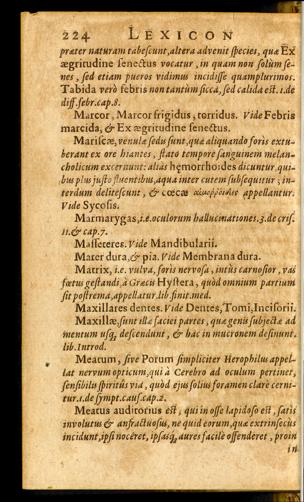 224 LEXICON
præter naturam tabescunt, altera advenit species, quæ Ex
ægritudine senectus vocatur, in quam non solùm se-
nes, sed etiam pueros vidimus incidisse quamplurimos.
Tabida verò febris non tantùm sicca, sed calida est. 1. de
diff. febr. cap. 8.
Marcor, Marcor frigidus, torridus. Vide Febris
marcida, & Ex ægritudine senectus.
Mariscæ, venulæ sedis sunt, quæ aliquando foris extu-
berant ex ore hiantes, stato tempore sanguinem melan-
cholicum excernunt: aliàs hęmorrhoides dicuntur qui-
bus plus justo fluentibus, aqua inter cutem subsequitur; in-
terdum delitescunt, & cœcæ appellantur.
Vide Sycosis.
Marmarygas, i.e. oculorum hallucinationes. 3. de cris.
11. & cap. 7.
Masseteres. Vide Mandibularii.
Mater dura, & pia. Vide Membrana dura.
Matrix, i.e. vulva, foris nervosa, intùs carnosior, vas
fœtus gestandi, à Græcis Hystera, quòd omnium partium
sit postrema, appellatur. lib. finit. med.
Maxillares dentes. Vide Dentes, Tomi, Incisorii.
Maxillæ, sunt illæ faciei partes, quæ genis subjectæ ad
mentum usq; descendunt, & hac in mucronem desinunt.
lib. Introd.
Meatum, sive Porum simpliciter Herophilus appel-
lat nervum opticum, qui à Cerebro ad oculum pertinet,
sensibilis spiritûs via, quòd ejus solius foramen clarè cerni-
tur. 1. de sympt. caus. cap. 2.
Meatus auditorius est, qui in osse lapidoso est, satis
involutus & anfractuosus, ne quid eorum, quæ extrinsecus
incidunt, ipsi noceret, ipsasq; aures facilè offenderet, proin
in